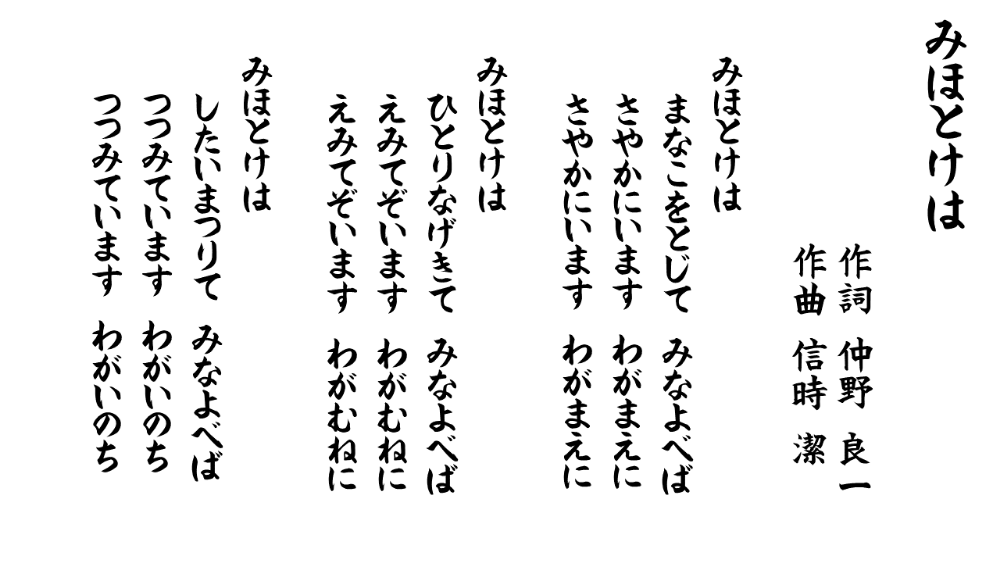 みほとけは
作詞 仲野 良一
作曲 信時 潔
みほとけは
まなこをとじて みなよべば
さやかにいます わがまえに
さやかにいます わがまえに
みほとけは
ひとりなげきて みなよべば
えみてぞいます わがむねに
えみてぞいます わがむねに
みほとけは
したいまつりて みなよべば
つつみています わがいのち
つつみています わがいのち